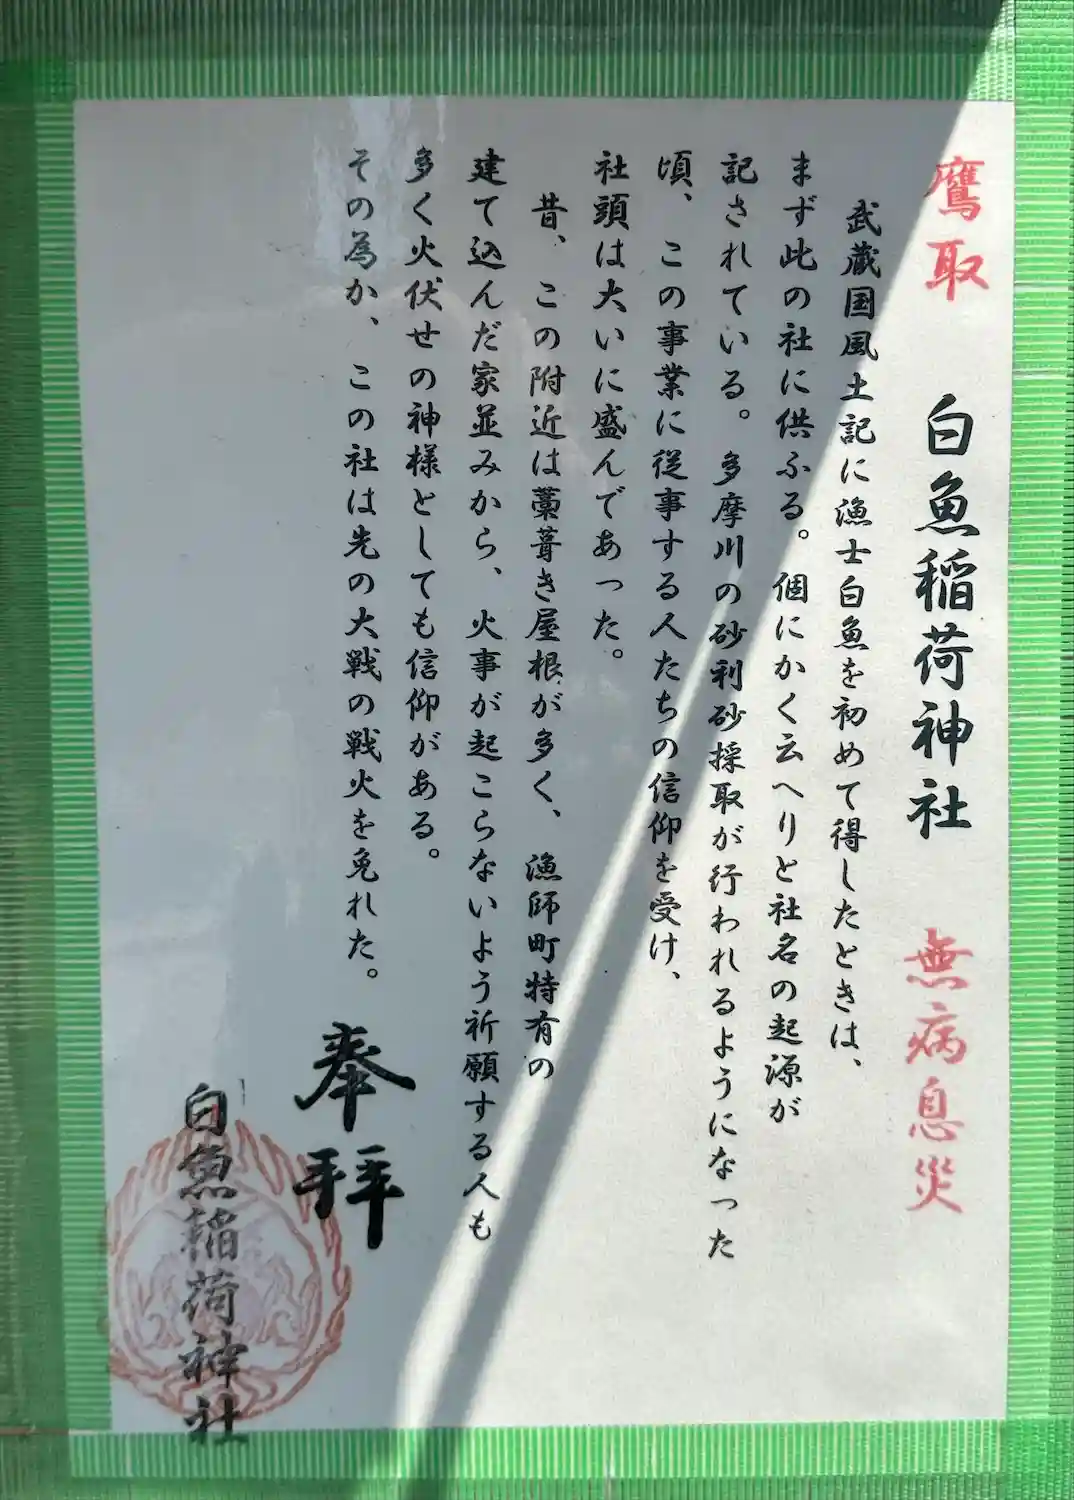 鷹取 白魚稲荷神社 無病息災
武蔵国風土記に漁士白魚を初めて得したときは、
まず此の社に供ふる。個にかく云へりと社名の起源が
記されている。多摩川の砂利砂採取が行われるようになった
頃、この事業に従事する人たちの信仰を受け、
社頭は大いに盛んであった。
昔、この附近は藁葺き屋根が多く、漁師町特有の
建て込んだ家並みから、火事が起こらないよう祈願する人も
多く火伏せの神様としても信仰がある。
その為か、この社は先の大戦の戦火を免れた。
奉拝
白魚稲荷神社